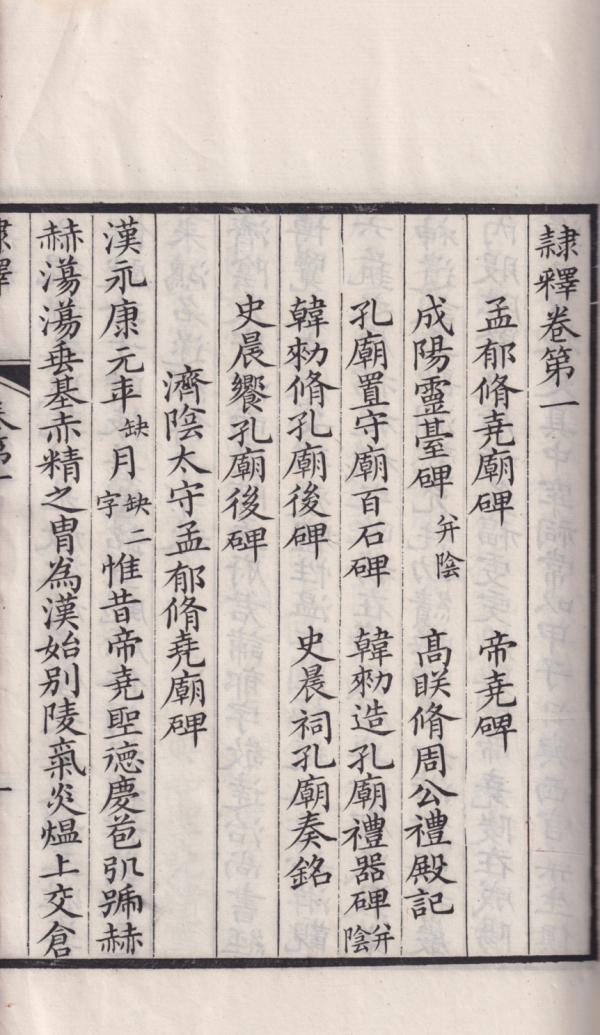 隸釋卷第一
孟郁脩堯廟碑 帝堯碑
成陽靈臺碑 并陰 高眹脩周公禮殿記
孔廟置守廟百石碑 韓勑造孔廟禮器碑 并陰
韓勑脩孔廟後碑 史晨祠孔廟奏銘
史晨饗孔廟後碑
濟陰太守孟郁脩堯廟碑
漢永康元年缺月缺二字惟昔帝堯聖德慶苞㢧號赫
赫蕩蕩垂基赤精之胄為漢始别陵氣炎煴上交倉